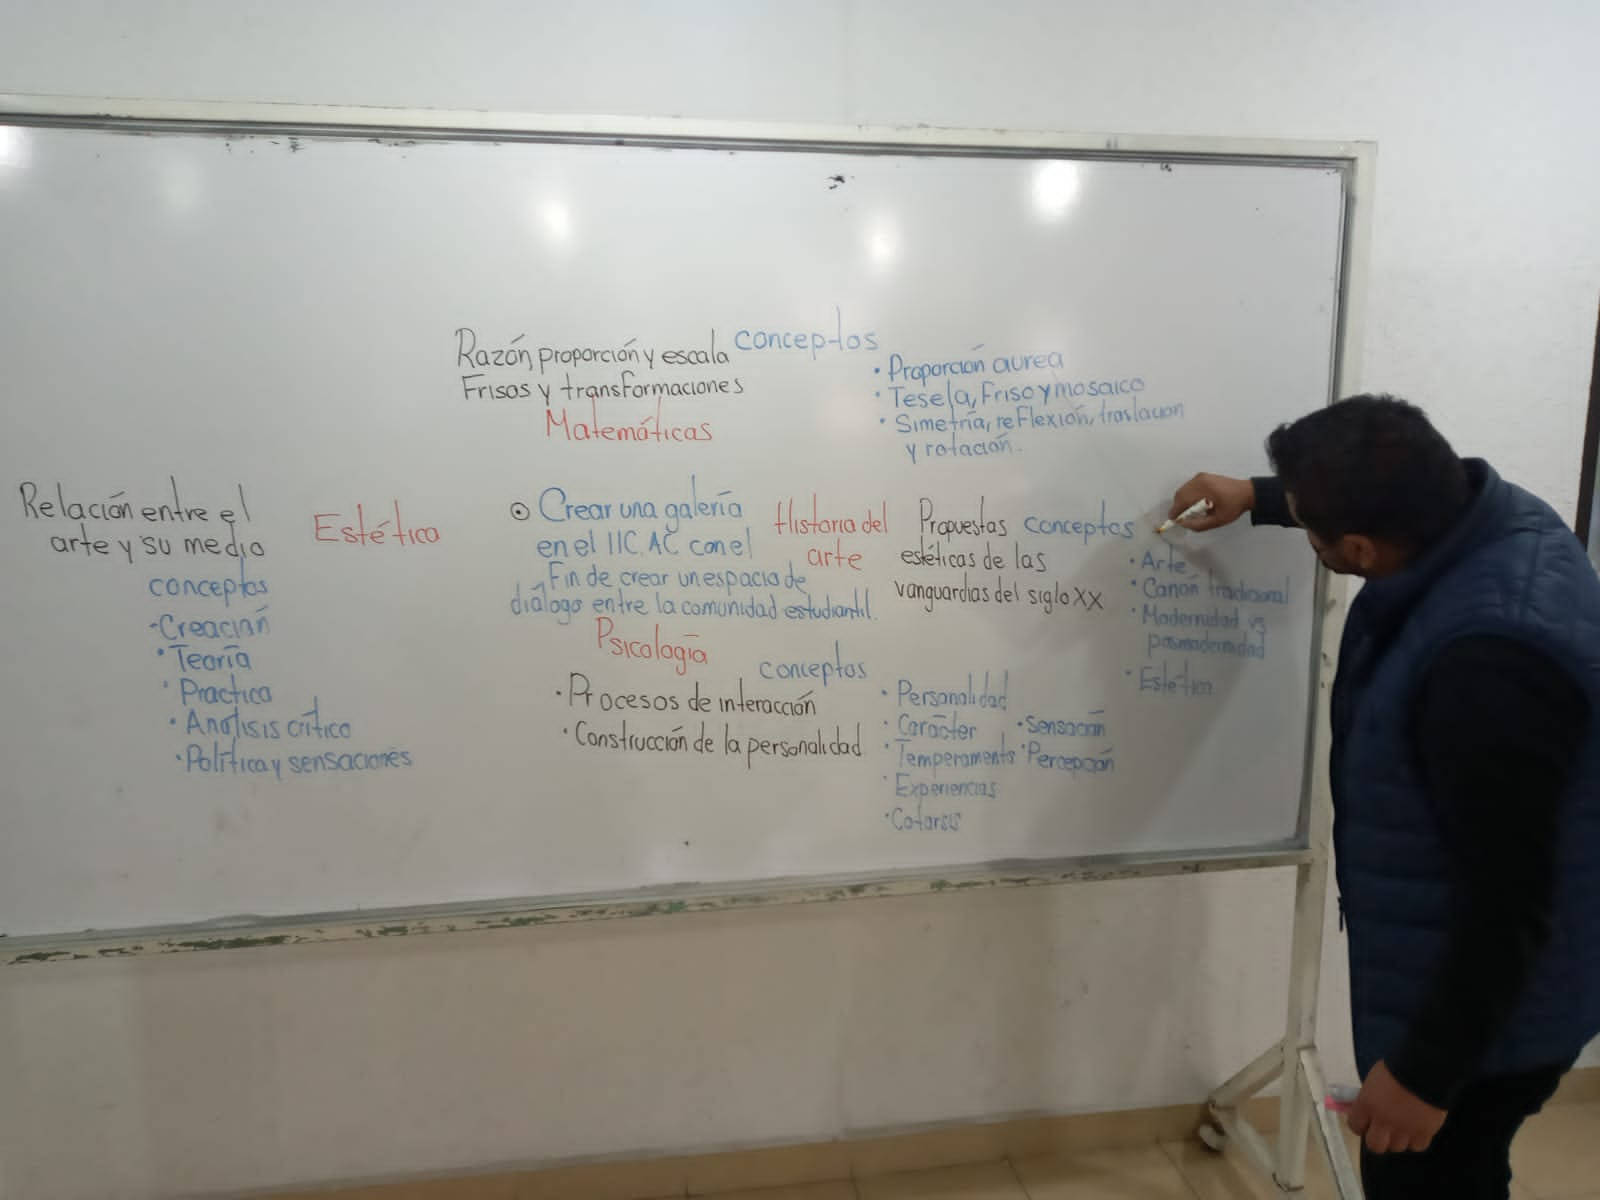 Razón, proporción y escala
Frisos y transformaciones
Matemáticas
conceptos
• Proporción aurea
• Tesela, Friso y mosaico
• Simetría, reflexión, traslacion
y rotación.
Relación entre el
arte y su medio
Estético
conceptos
-Creación
• Teoría
• Practica
• Análisis crítico
• Política y sensaciones
⊙ Crear una galería
en el IIC, AC con el
Fin de crear un espacio de
diálogo entre la comunidad estudiantil.
Historia del
arte
Propuestas
estéticas de las
vanguardias del siglo XX
conceptos
• Arte
• Canon tradicional
• Modernidad vs
posmodernidad
• Estética
Psicología
• Procesos de interacción
• Construcción de la personalidad
conceptos
• Personalidad
• Carácter
• Temperamento
• Experiencias
• Catarsis
• Sensación
• Percepción